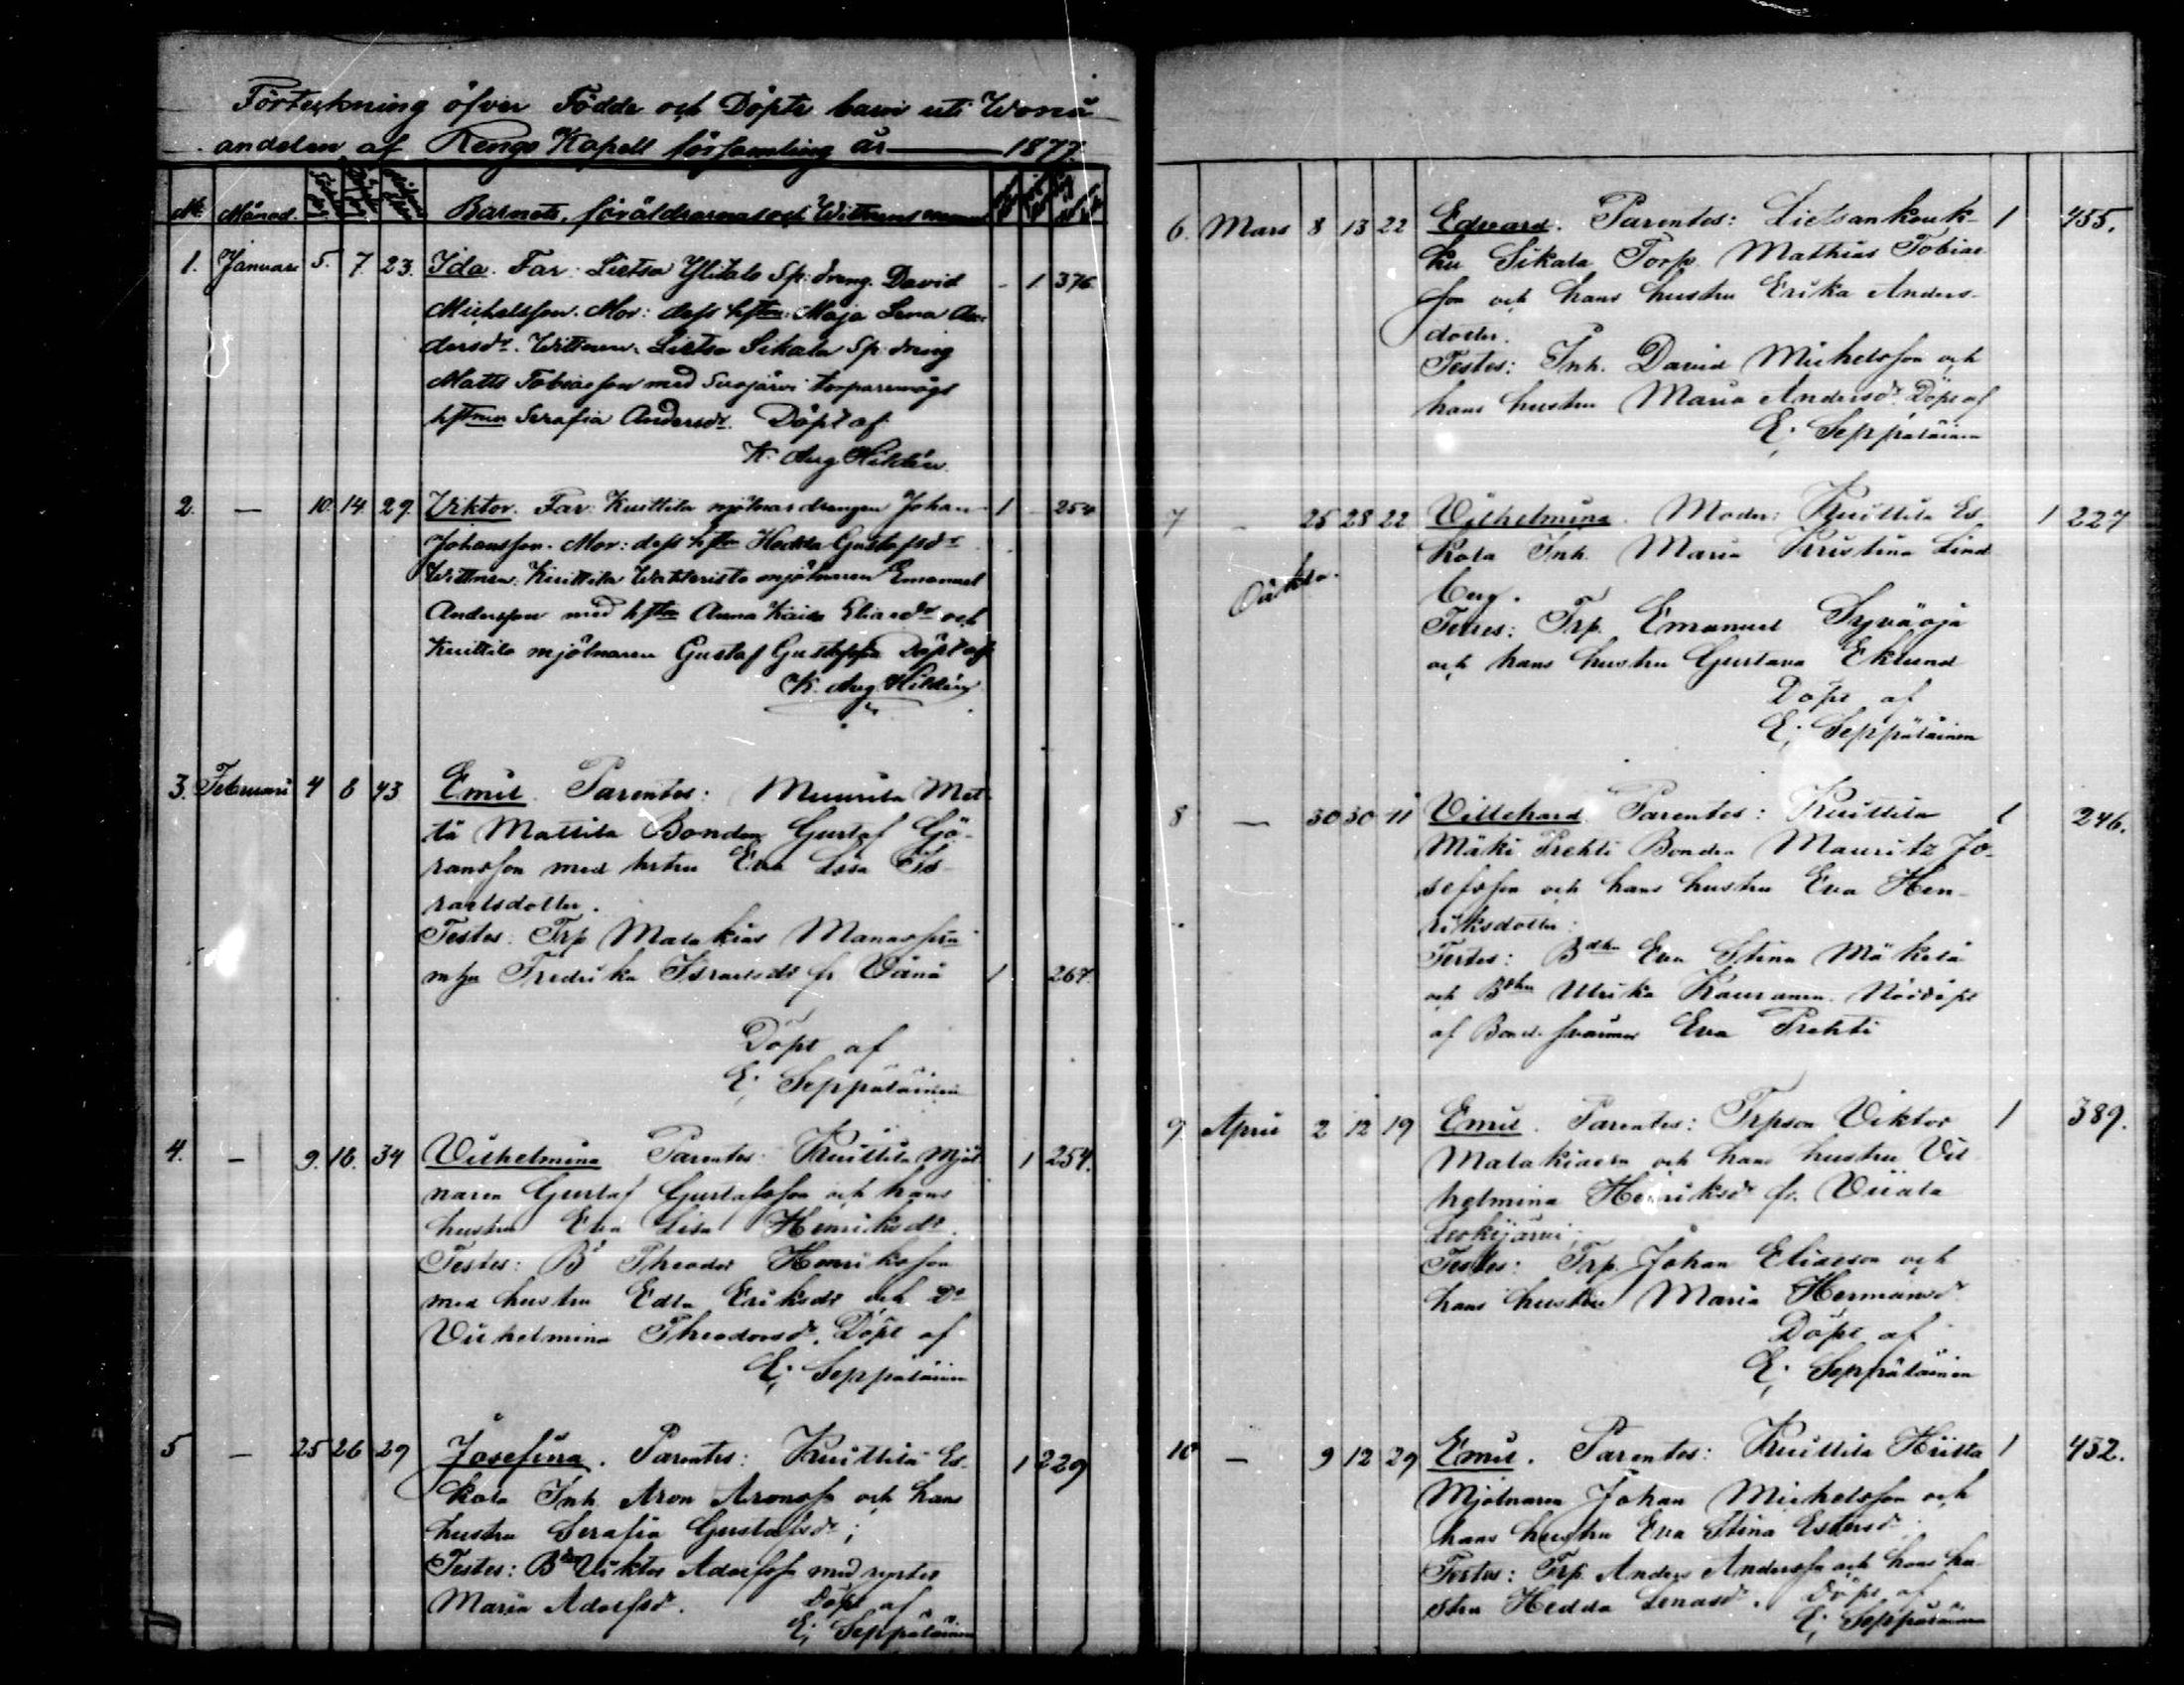 Förteckning öfver Födde och Döpte barn uti Wonå
andelen af Kengo Kapell församling år 1877.
№ Månad. Barnets, föräldrarnas och Wittnens namn
1. Januari 5. 7. 23. Ida. Far: Lietsa Ylitalo Sp. dräng David - 1 376
Michelsson. Mor: dess hstru: Maja Lena An-
dersdr. Wittnen: Lietsa Sikala Sp. dräng
Matts Tobiasson med torparemågs
hstrun Serafia Andersdr. Döpt af
K. Aug. Hildén
2. — 10. 14. 29. Viktor. Far: Kuittila mjölnardrängen Johan 1 - 254
Johansson. Mor: dess hstru Hedda Gustafsdr
Wittnen: Kuittila mjölnaren Emanuel
Andersson med hstru Anna Kaisa Eliasdr och
Kuittila mjölnaren Gustaf Gustafsson Döpt af
K. Aug. Hildén
3. Februari 4 8 43 Emil. Parentes: Muurila Mat-
tä Mattila Bonden Gustaf Gö-
ransson med hstru Eva Lisa Is-
raelsdotter.
Testes: Trp Malakias Manasson
m hu Fredrika Israelsdr fr Vänä 1 267.
Döpt af
E; Seppäläinen
4. — 9. 18. 34 Vilhelmina Parentes: Kuittila Mjöl- 1 254.
naren Gustaf Gustafsson och hans
hustru Eva Lisa Henriksdr.
Testes: Bd Theodor Henriksson
med hustru Edla Eriksdr och Do
Vilhelmina Theodorsdr. Döpt af
E; Seppäläinen
5 — 25 26 29 Josefina. Parentes: Kuittila Es- 1 229
kola Inh. Aron Aronss och hans
hustru Serafia Gustafsdr;
Testes: Bdn Viktor Adolfss med syster
Maria Adolfsdr. Döpt af
E; Seppäläinen
6. Mars 8 13 22 Edvard. Parentes: Lietsankouk- 1 455.
ku Sikala Torp. Mathias Tobias-
son och hans hustru Erika Anders-
dotter.
Testes: Inh. David Michelsson och
hans hustru Maria Andersdr. Döpt af
E; Seppäläinen
7 - 25 28 22 Vilhelmina. Moder: Kuittila Es- 1 227
kola Inh. Maria Kristina Lind
Oäkta. berg.
Testes: Trp. Emanuel Syväoja
och hans hustru Gustava Eklund
Döpt af
E; Seppäläinen
8 — 30 30 41 Villehard Parentes: Kuittila 1 246.
Mäki Prehti Bonden Mauritz Jo-
sefsson och hans hustru Eva Hen-
riksdotter:
Testes: Bdhu Eva Stina Mäkelä
och Bdhu Ulrika Kauranen. Nöddöpt
af Bond. Eva Prehti
9 April 2 12 19 Emil. Parentes: Trpson Viktor 1 389.
Malakiasson och hans hustru Vil
helmina Henriksdr fr. Viiala
Testes: Trp. Johan Eliasson och
hans hustru Maria Hermansdr.
Döpt af
E; Seppäläinen
10 — 9 12 29 Emil. Parentes: Kuittila Hiitta 1 452.
Mjölnaren Johan Michelsson och
hans hustru Eva Stina Estersdr:
Testes: Trp. Anders Anderss och hans hu-
stru Hedda Lenasdr. Döpt af
E; Seppäläinen